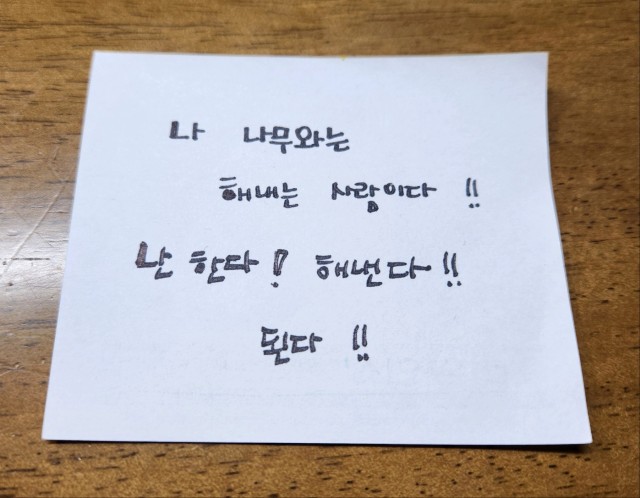 나 나무와는
해내는 사람이다 !!
난 한다! 해낸다!!
된다 !!